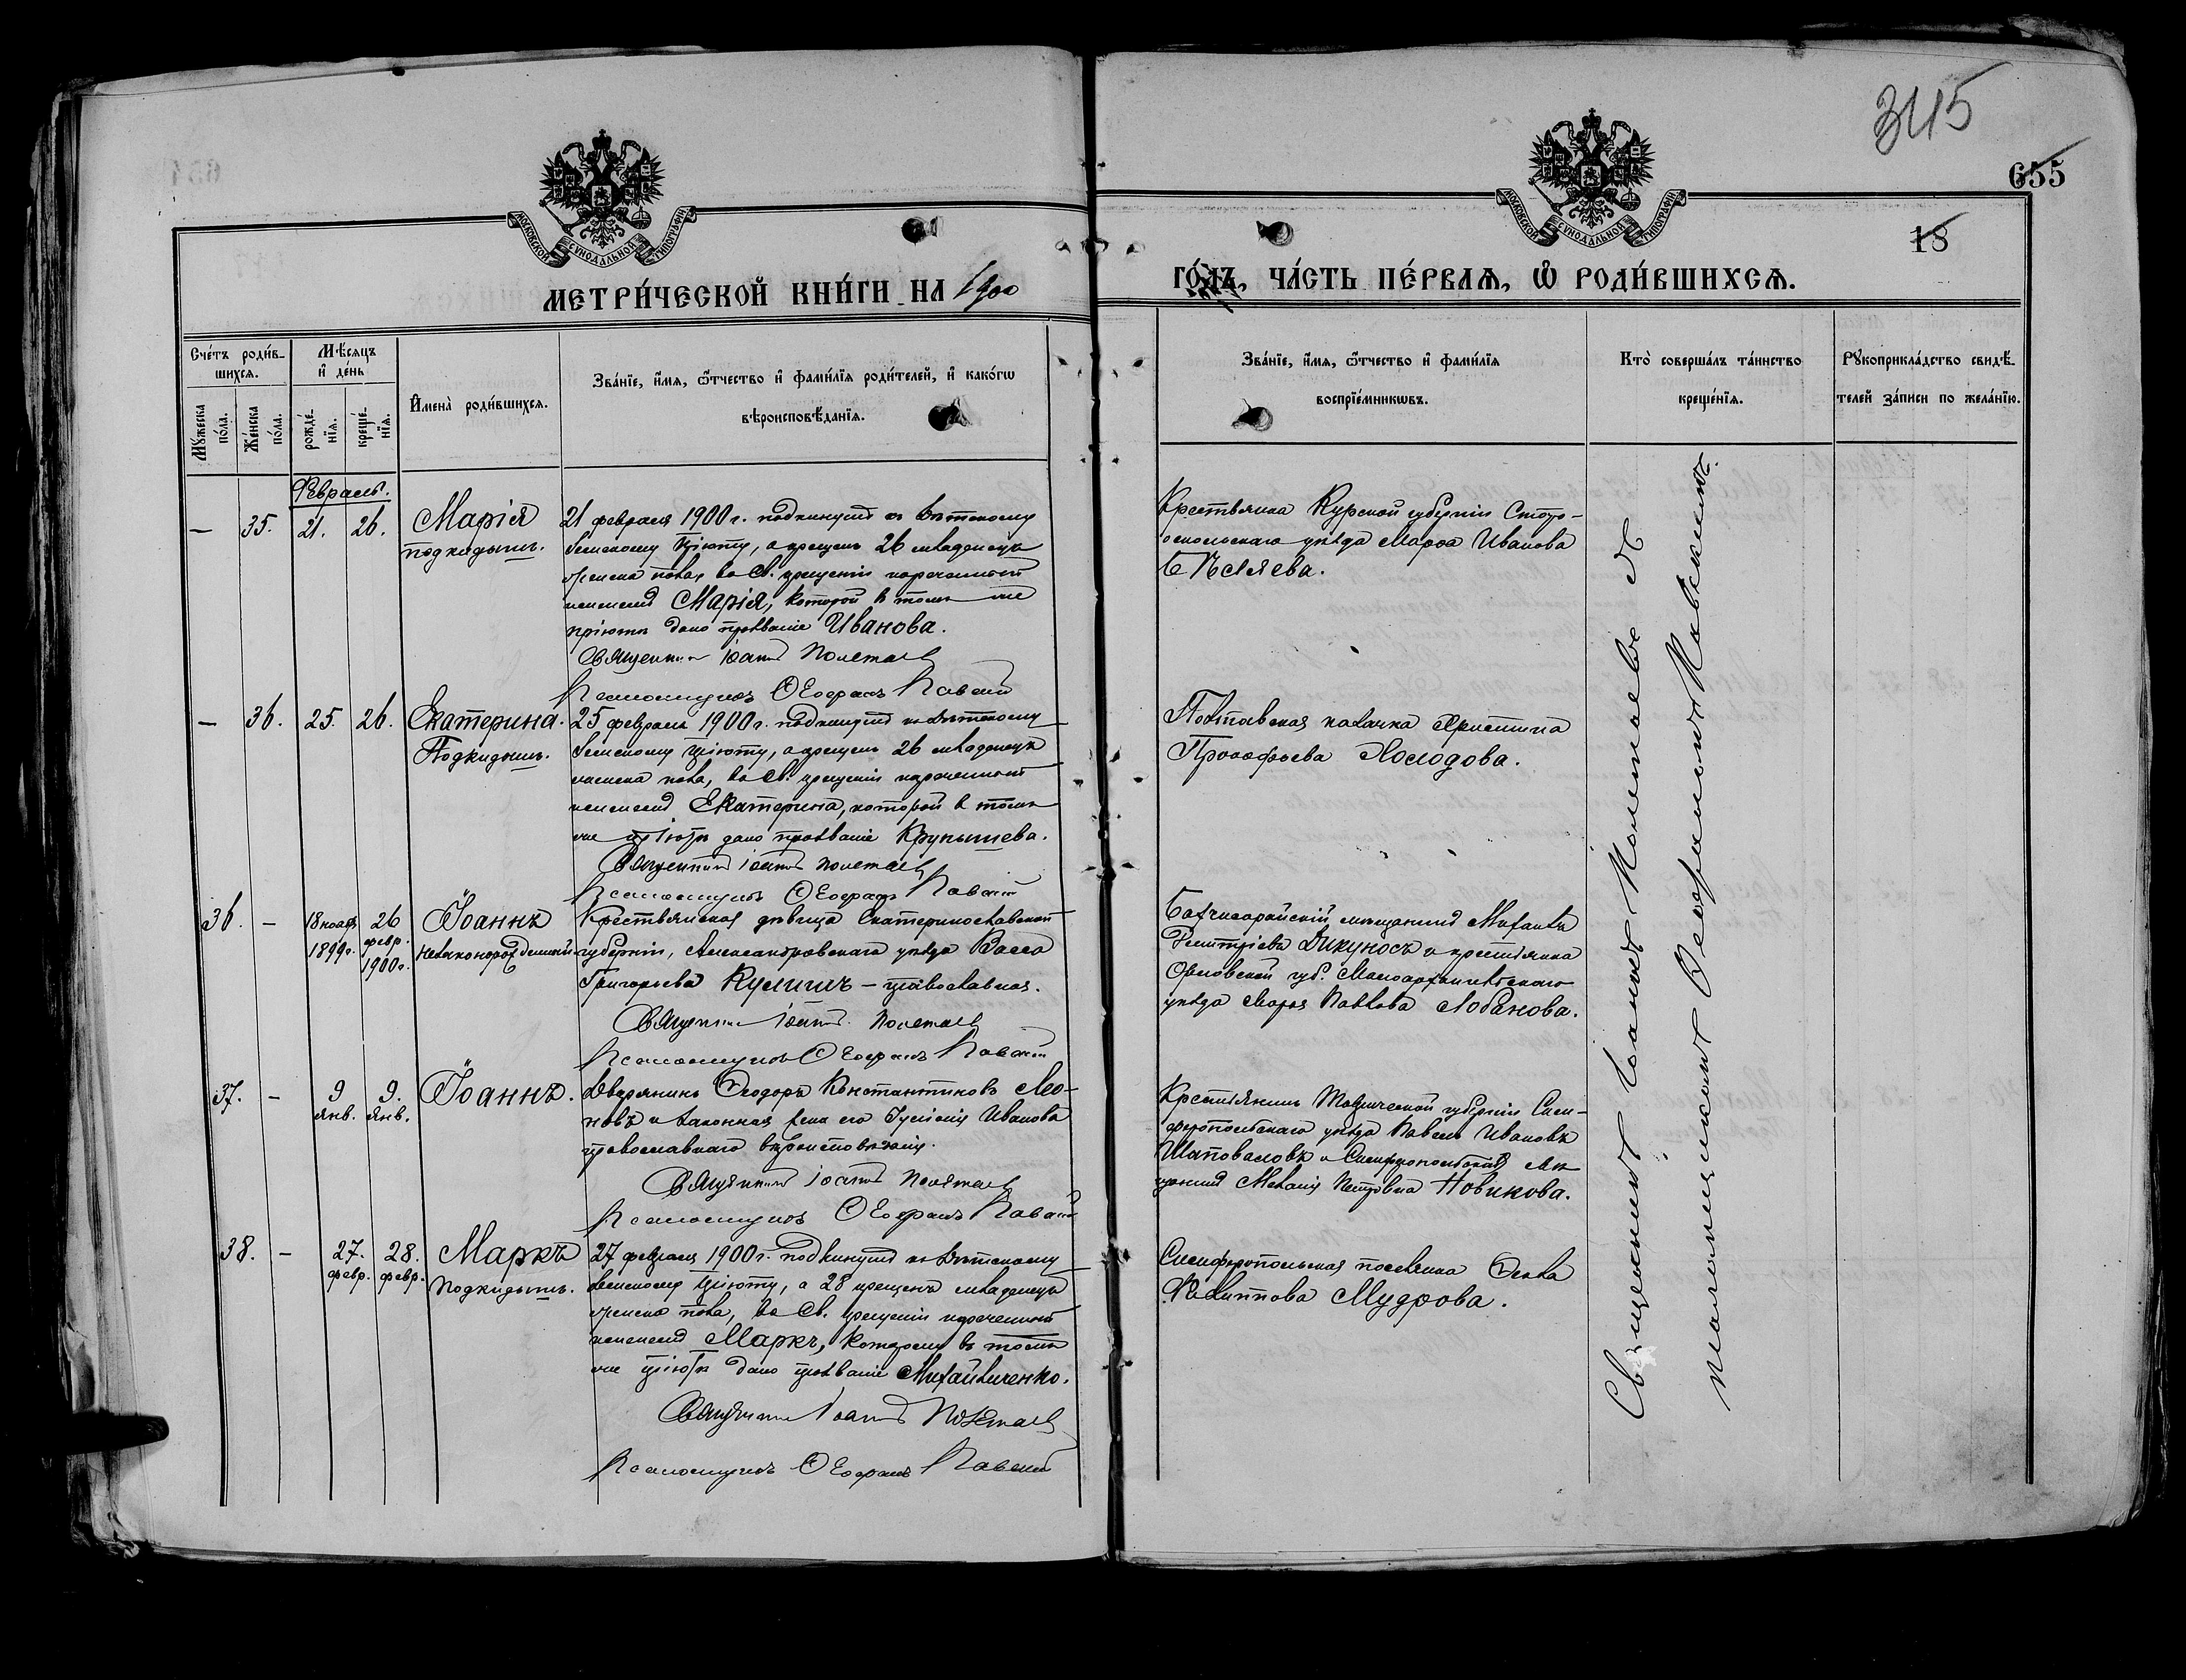 345
655
18
МОСКОВСКОЙ СѴНОДАЛЬНОЙ ТИПОГРАФІИ
МОСКОВСКОЙ СѴНОДАЛЬНОЙ ТИПОГРАФІИ
МЕТРИ́ЧЕСКОЙ КНИ́ГИ НА 1900
ГО́ДЪ, ЧА́СТЬ ПЕ́РВАѦ, Ѡ҆ РОДИ́ВШИХСѦ.
Сче́тъ роди́в-
шихсѧ.
Мꙋ́жеска
по́ла.
Же́нска
по́ла.
Мѣ́сѧцъ
и҆ де́нь
рожде́-
нїѧ.
креще́-
нїѧ.
И҆мена̀ роди́вшихсѧ.
Зва́нїе, и҆́мѧ, ѻ҆́тчество и҆ фами́лїѧ роди́телей, и҆ како́гѡ
вѣроисповѣ́данїѧ.
Зва́нїе, и҆́мѧ, ѻ҆́тчество и҆ фами́лїѧ
воспрїе́мникѡвъ.
Кто̀ соверша́лъ та́инство
креще́нїѧ.
Рꙋкоприкла́дство свидѣ́-
телей за́писи по жела́нїю.
Февраль.
— 35. 21. 26. Марія
подкидышъ.
21 февраля 1900 г. подкинута къ Дѣтскому
Земскому Пріюту, а крещенъ 26 младенецъ
женска пола, во Св. крещеніи нареченный
именемъ Марія, которой в томъ же
пріютѣ дано прозваніе Иванова.
Священникъ Іоаннъ Полетаевъ
Псаломщикъ Ѳеофанъ Павскій
Крестьянка Курской губерніи Старо-
оскольскаго уѣзда Марѳа Иванова
Бѣляева.
— 36. 25. 26. Екатерина.
Подкидышъ.
25 февраля 1900 г. подкинута къ Дѣтскому
Земскому Пріюту, а крещенъ 26 младенецъ
женска пола, во Св. крещеніи нареченный
именемъ Екатерина, которой в томъ
же пріютѣ дано прозваніе Крупышева.
Священникъ Іоаннъ Полетаевъ
Псаломщикъ Ѳеофанъ Павскій
Полтавская казачка Христина
Прокофьева Холодова.
36. — 18 нояб. 1899 г. 26 февр. 1900 г. Іоаннъ
незаконорожденный
Крестьянская дѣвица Екатеринославской
губерніи, Александровскаго уѣзда Васса
Григорьева Кулишъ — православная.
Священникъ Іоаннъ Полетаевъ
Псаломщикъ Ѳеофанъ Павскій
Бахчисарайскій мѣщанинъ Михаилъ
Дмитріевъ Дикуносъ и крестьянка
Орловской губ. Малоархангельскаго
уѣзда Марѳа Павлова Лобанова.
37. — 9 янв. 9. янв. Іоаннъ.
Дворянинъ Ѳеодоръ Константиновъ Лео-
новъ и законная жена его Іуліанія Иванова
православнаго вѣроисповѣданія.
Священникъ Іоаннъ Полетаевъ
Псаломщикъ Ѳеофанъ Павскій
Крестьянинъ Таврической губерніи Сим-
феропольскаго уѣзда Павелъ Ивановъ
Шаповаловъ и Симферопольская мѣ-
щанка Меланія Петровна Новикова.
38. — 27. февр. 28. февр. Маркъ
Подкидышъ.
27 февраля 1900 г. подкинутъ къ Дѣтскому
Земскому Пріюту, а 28 крещенъ младенецъ
мужска пола, во Св. крещеніи нареченный
именемъ Маркъ, которому въ томъ
же пріютѣ дано прозваніе Михайличенко.
Священникъ Іоаннъ Полетаевъ
Псаломщикъ Ѳеофанъ Павскій
Симферопольская поселянка Ѳекла
Филиппова Мудрова.
Священникъ Іоаннъ Полетаевъ съ
псаломщикомъ Ѳеофаномъ Павскимъ.